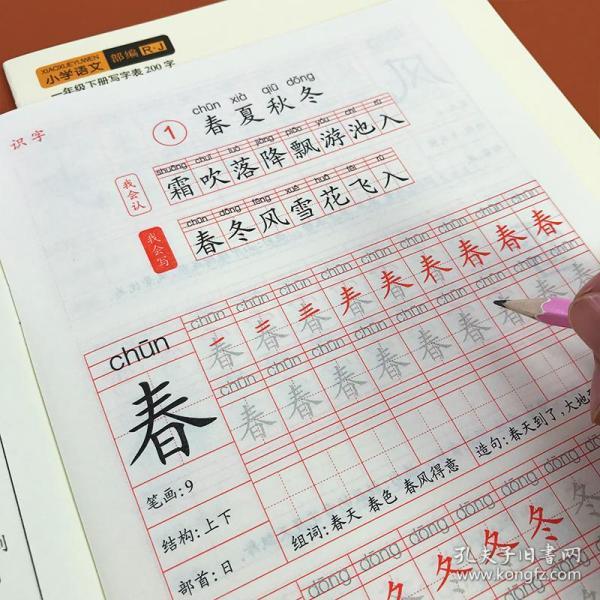 XIAOXUEYUWEN
小学语文 部编 R·J
一年级下册写字表200字
识字
chūn xià qiū dōng
1 春夏秋冬
shuāng chuī luò jiàng piāo yóu chí rù
我会认 霜吹落降飘游池入
chūn dōng fēng xuě huā fēi rù
我会写 春冬风雪花飞入
chūn chūn chūn chūn chūn chūn chūn chūn chūn
春春春春春春春春春
chūn
chūn chūn chūn chūn chūn chūn chūn
春春春春春春春
春
笔画:9
结构:上下
部首:日
组词:春天 春色 春风得意 造句:春天到了,大地
dōng dōng dōng dōng dōng dōng
冬冬冬冬
孔夫子旧书网
www.kongfz.com